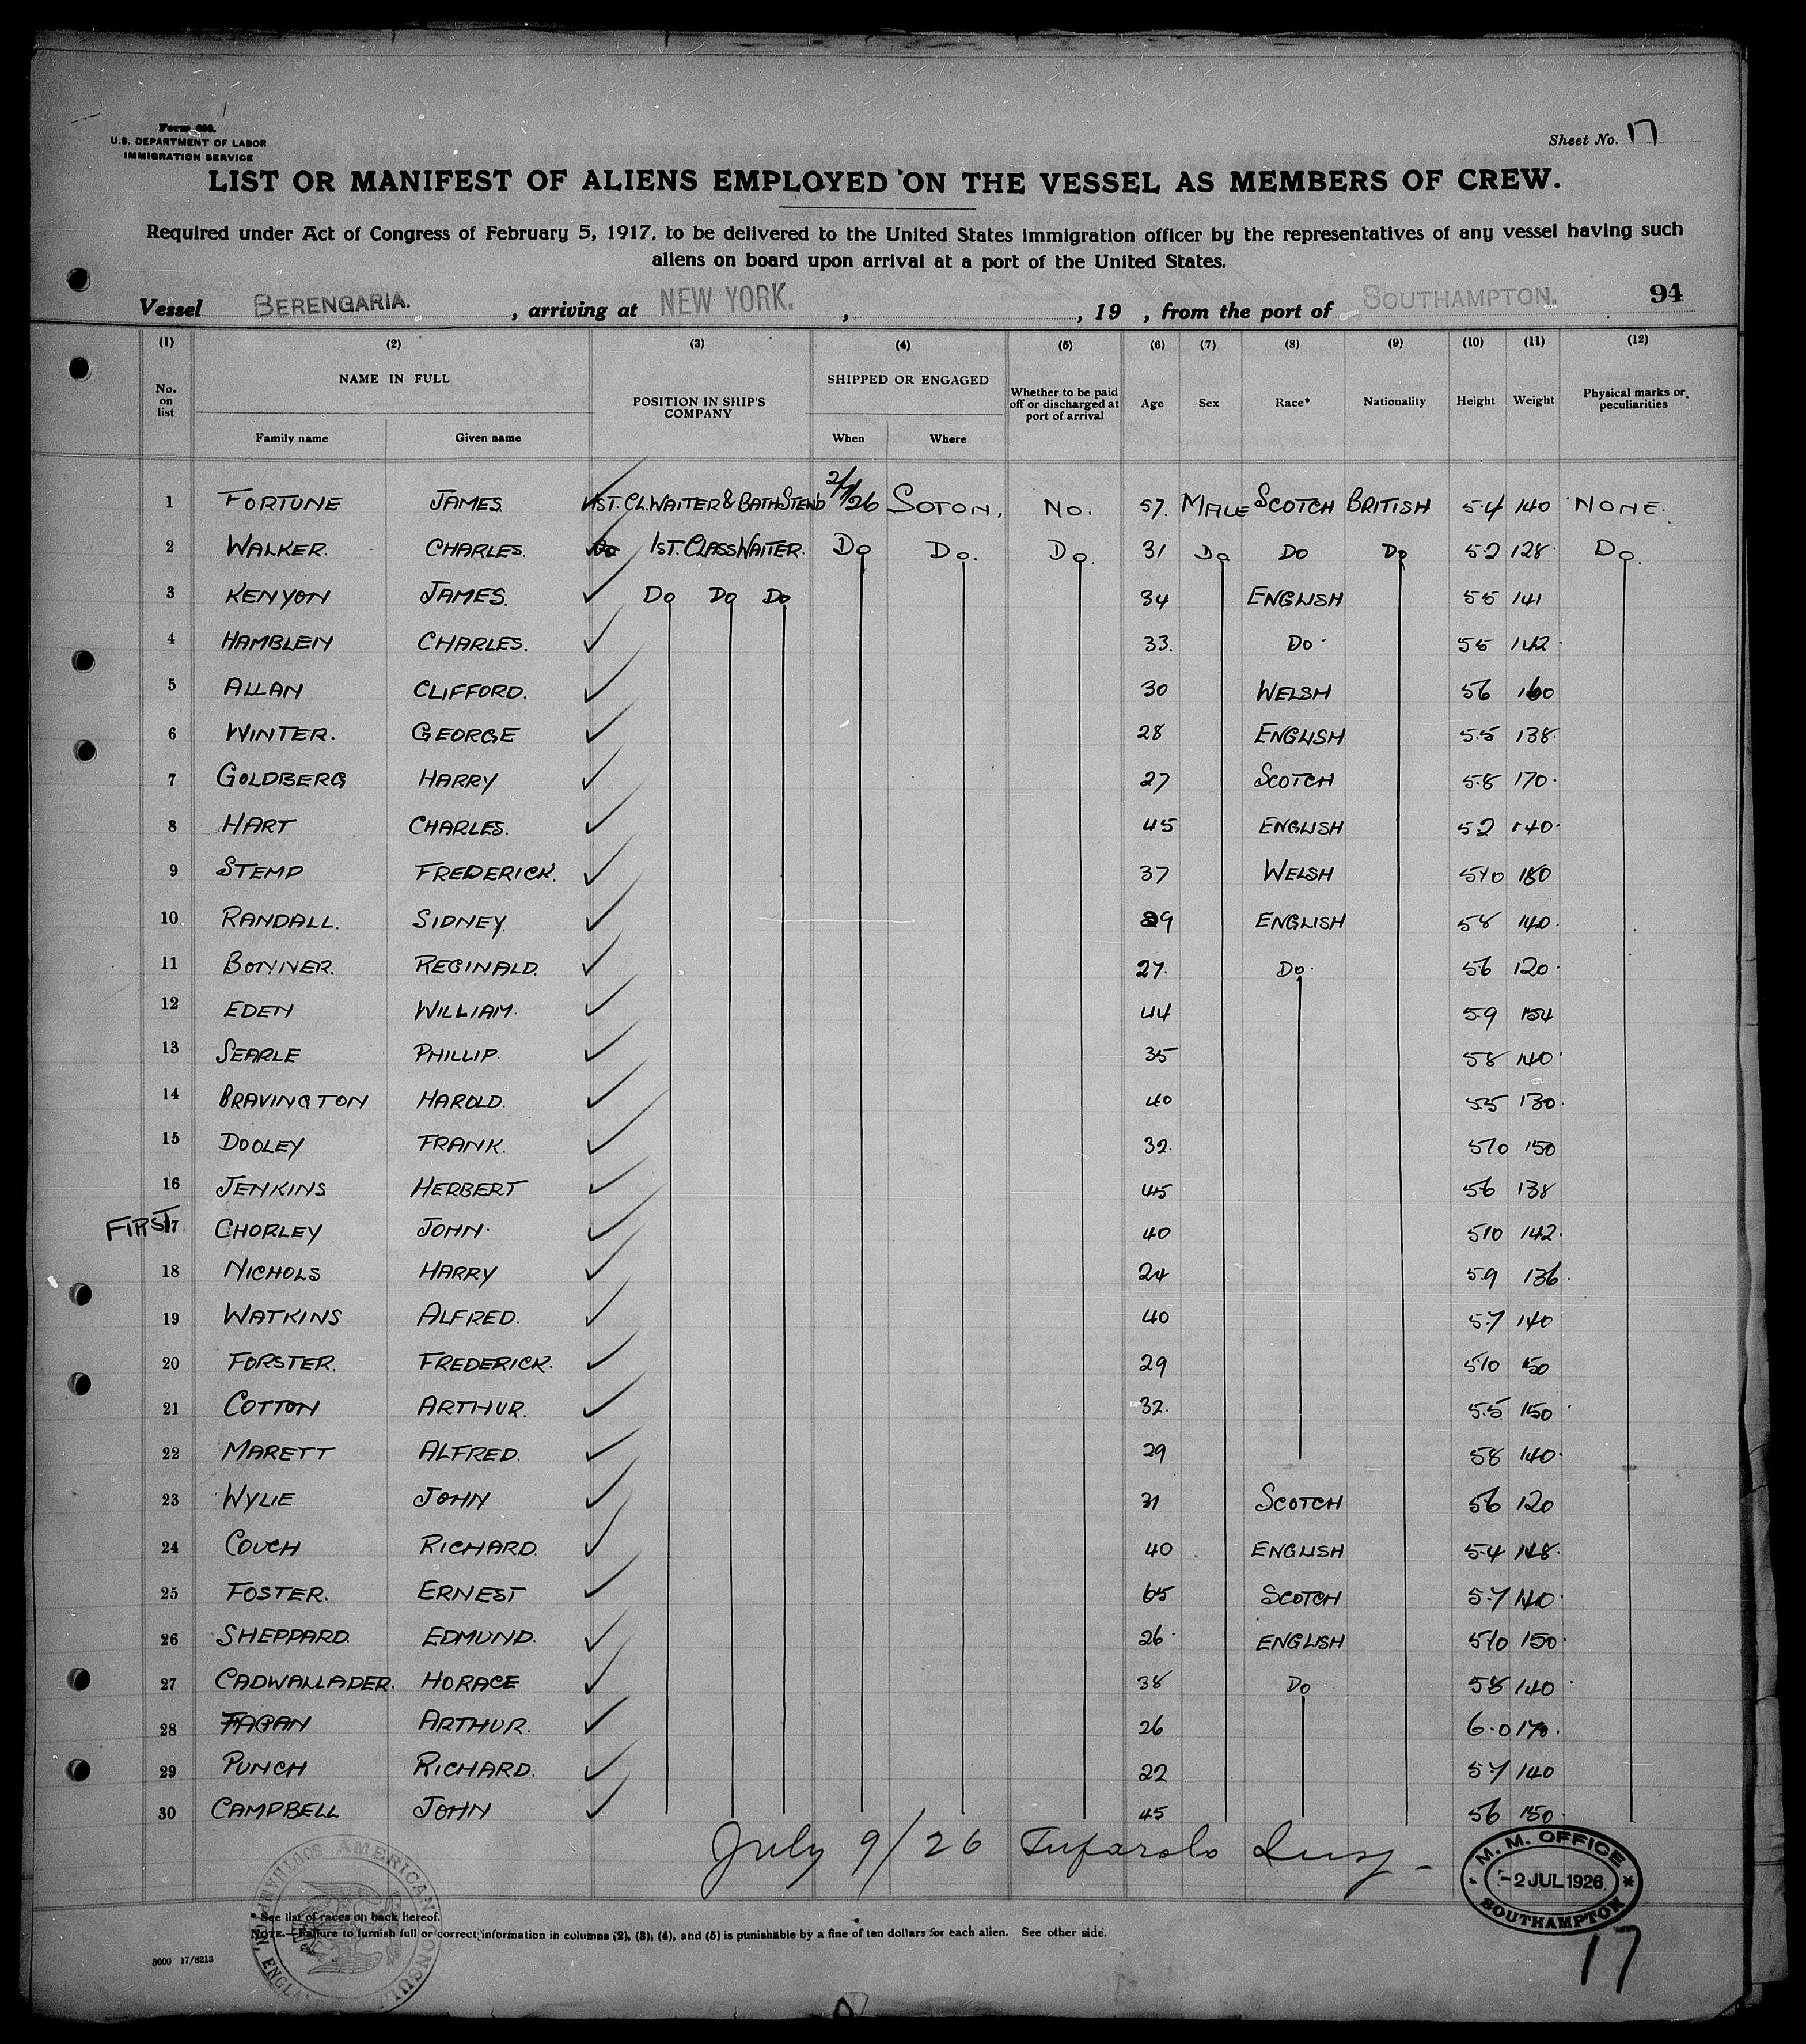 Form 680.
U.S. DEPARTMENT OF LABOR
IMMIGRATION SERVICE
Sheet No. 17
LIST OR MANIFEST OF ALIENS EMPLOYED ON THE VESSEL AS MEMBERS OF CREW.
Required under Act of Congress of February 5, 1917, to be delivered to the United States immigration officer by the representatives of any vessel having such
aliens on board upon arrival at a port of the United States.
Vessel BERENGARIA. , arriving at NEW YORK. , , 19 , from the port of SOUTHAMPTON. 94
(1) (2) (3) (4) (5) (6) (7) (8) (9) (10) (11) (12)
No. on list NAME IN FULL Family name Given name POSITION IN SHIP'S COMPANY SHIPPED OR ENGAGED When Where Whether to be paid off or discharged at port of arrival Age Sex Race* Nationality Height Weight Physical marks or peculiarities
1 FORTUNE JAMES. 1ST. CL. WAITER & BATH STEWD 2/7/26 SOTON. NO. 57. MALE SCOTCH BRITISH 5.4 140 NONE.
2 WALKER. CHARLES. Do 1ST. CLASS WAITER. Do Do. Do. 31 Do Do Do 5.2 128 Do.
3 KENYON JAMES. Do Do Do 34 ENGLISH 5 5 141
4 HAMBLEN CHARLES. 33. Do. 5 5 142
5 ALLAN CLIFFORD. 30 WELSH 5 6 160
6 WINTER. GEORGE 28 ENGLISH 5.5 138
7 GOLDBERG HARRY 27 SCOTCH 5.8 170
8 HART CHARLES. 45 ENGLISH 5 2 140
9 STEMP FREDERICK. 37 WELSH 5 10 180
10 RANDALL. SIDNEY. 29 ENGLISH 5 8 140
11 BONNER. REGINALD. 27. Do. 5 6 120
12 EDEN WILLIAM. 44 5.9 154
13 SEARLE PHILLIP. 35 5 8 140
14 BRAVINGTON HAROLD. 40 5.5 130
15 DOOLEY FRANK. 32. 5 10 150
16 JENKINS HERBERT 45 5 6 138
FIRST 17 CHORLEY JOHN. 40 5 10 142
18 NICHOLS HARRY 24 5.9 136
19 WATKINS ALFRED. 40 5.7 140
20 FORSTER. FREDERICK. 29 5 10 150
21 COTTON ARTHUR. 32. 5.5 150
22 MARETT ALFRED. 29 5 8 140
23 WYLIE JOHN 31 SCOTCH 5 6 120
24 COUCH RICHARD. 40 ENGLISH 5.4 148
25 FOSTER. ERNEST 65 SCOTCH 5.7 140
26 SHEPPARD. EDMUND. 26 ENGLISH 5 10 150
27 CADWALLADER. HORACE 38 Do 5 8 140
28 FAGAN ARTHUR. 26 6.0 170
29 PUNCH RICHARD. 22 5.7 140
30 CAMPBELL JOHN 45 5 6 150
July 9/26 Tufarolo Insp-
M. M. OFFICE
-2 JUL 1926
SOUTHAMPTON
AMERICAN CONSUL
SOUTHAMPTON, ENGLAND
* See list of races on back hereof.
NOTE.—Failure to furnish full or correct information in columns (2), (3), (4), and (5) is punishable by a fine of ten dollars for each alien. See other side.
5000 17/8213
17